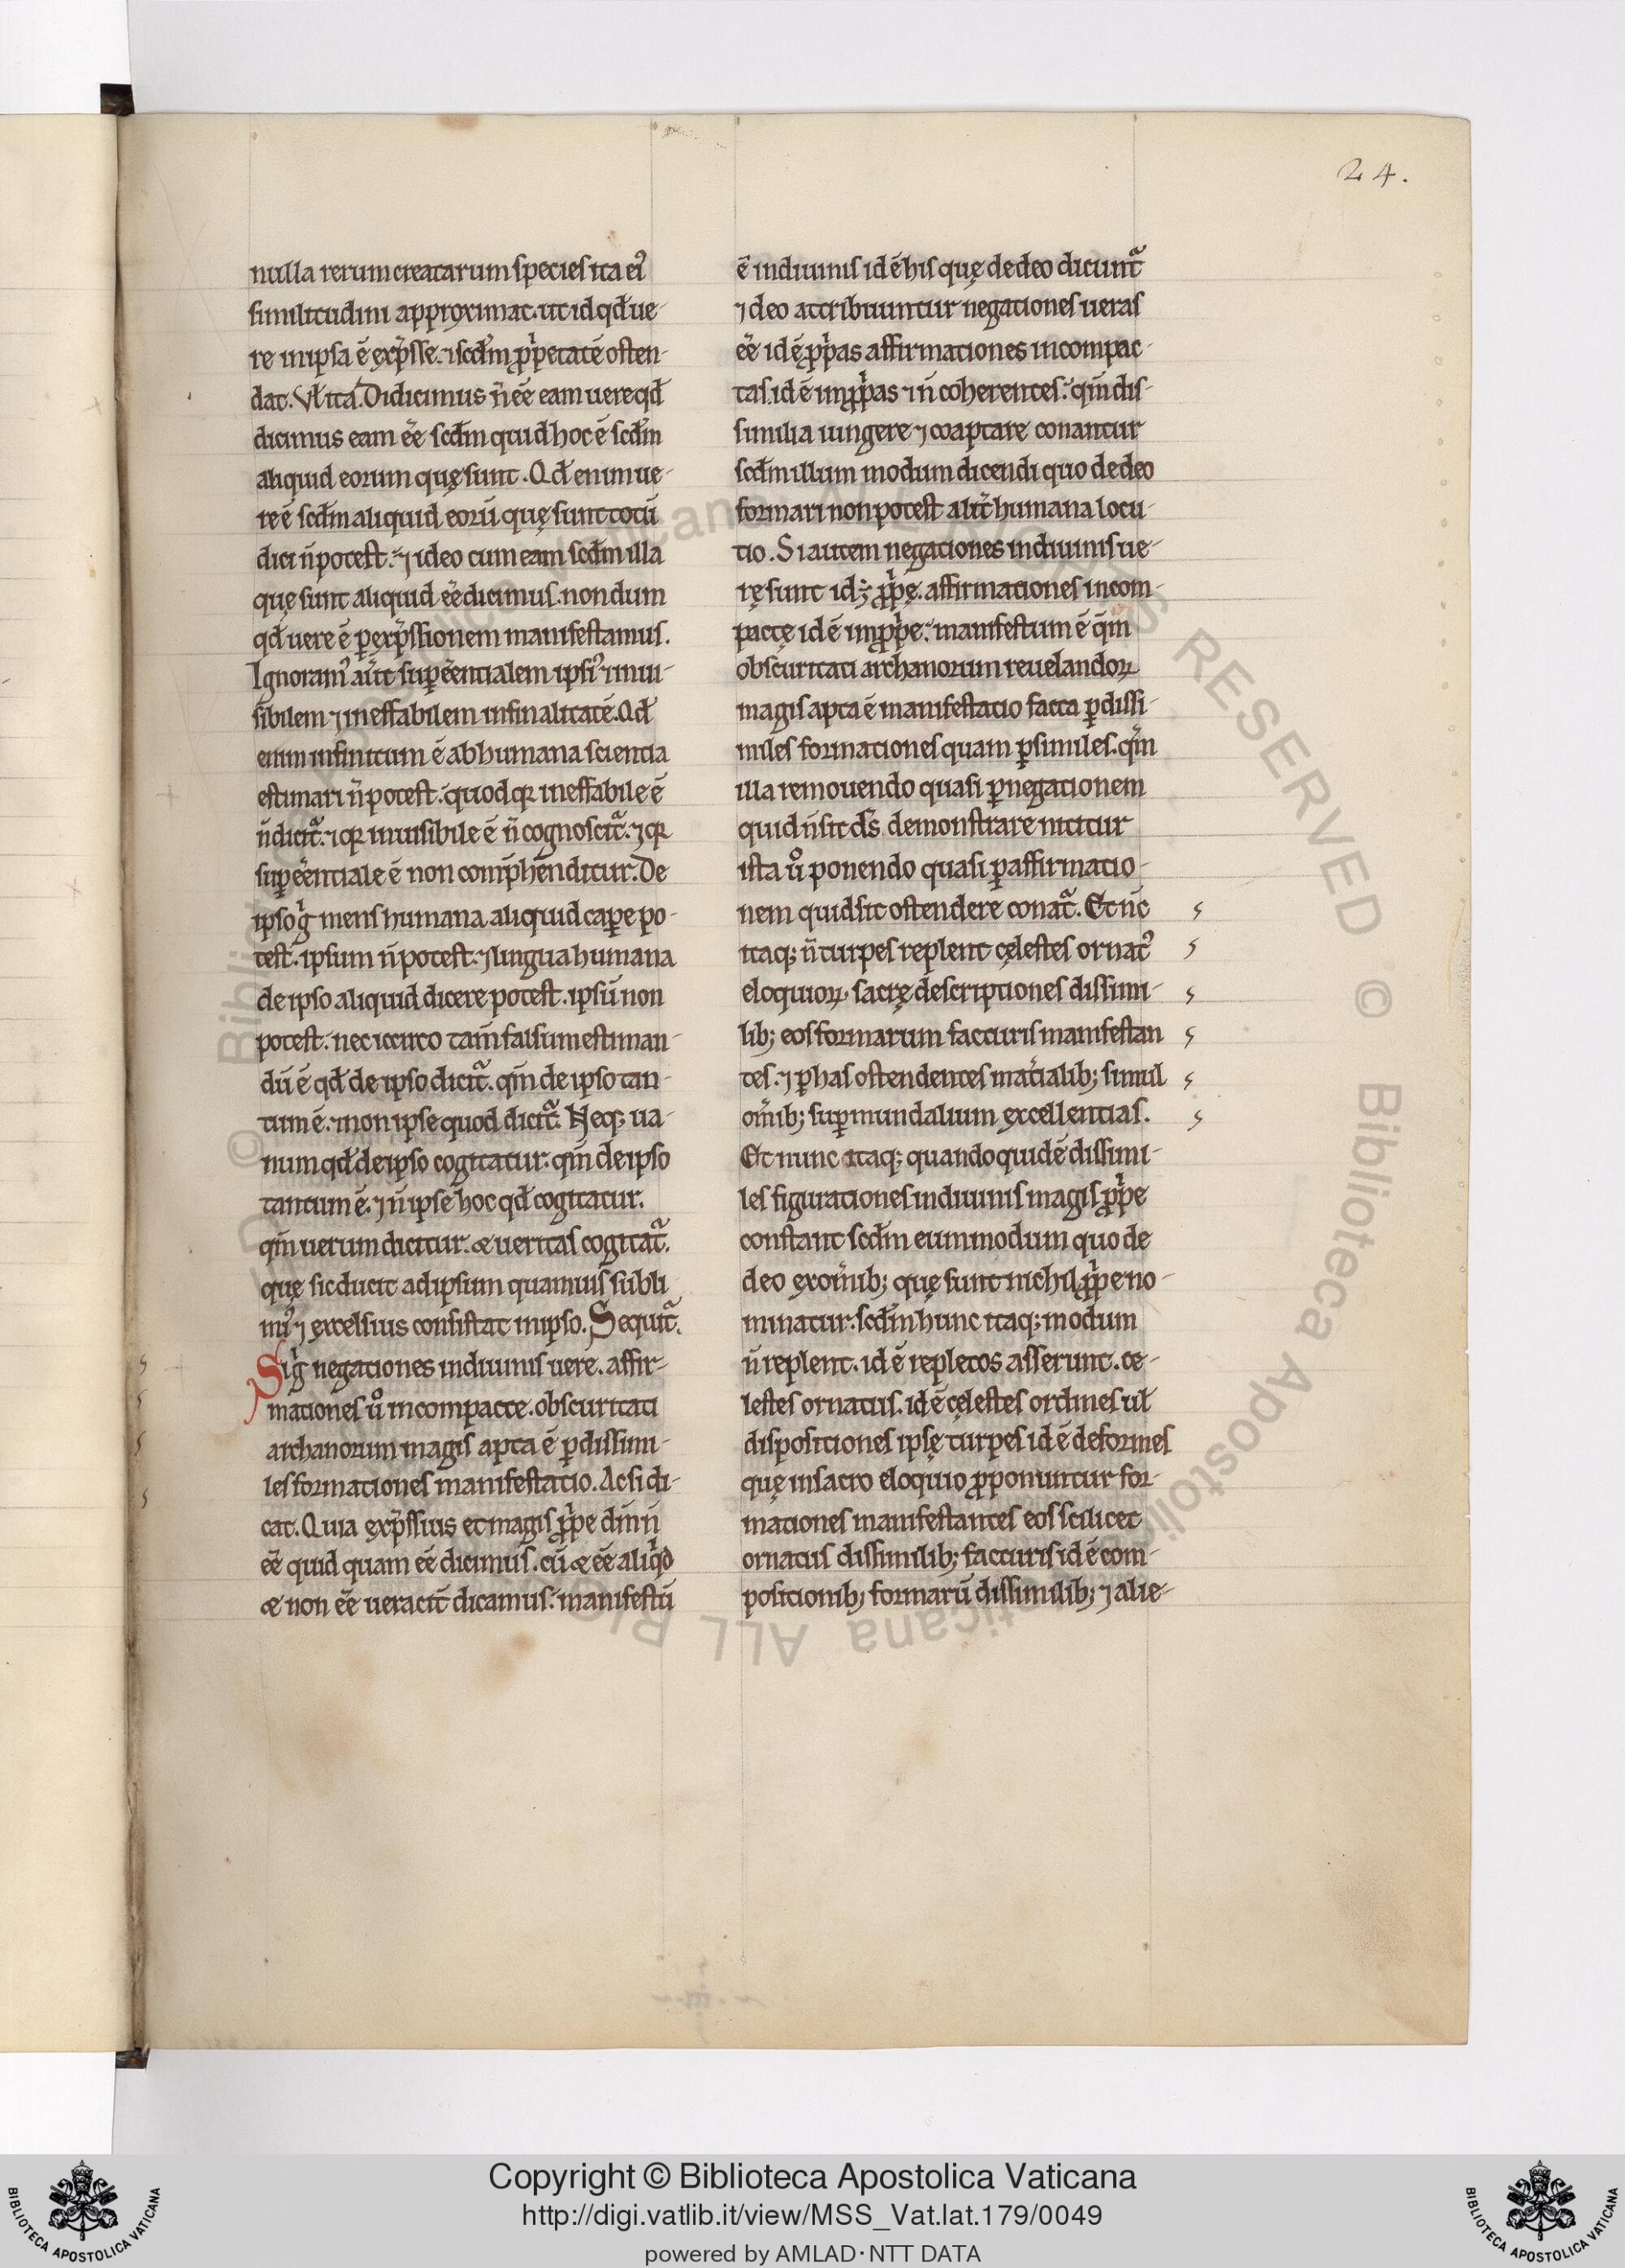 24.
nulla rerum creatarum species ita ei᷒
similitudini approximat. ut id qđ ue-
re in ipsa ē exp̄sse. ⁊ scđm pͥpetatē osten-
dat. Vł ita. Didicimus n̄ eē̄ eam uere qđ
dicimus eam eē̄ scđm quid hoc ē scđm
aliquid eorum quę sunt. Qđ enim ue-
re ē scđm aliquid eorū quę sunt totū
dici n̄ potest. ⁊ ideo cum eam scđm illa
quę sunt aliquid eē̄ dicimus. nondum
qđ uere ē ꝑ exp̄ssionem manifestamus.
Ignoram᷒ aut̄ suꝑeēntialem ipsi᷒ ⁊ inui-
sibilem ⁊ ineffabilem infinalitatē. Qđ
enim infinitum ē ab humana scientia
estimari n̄ potest. quod qꝛ ineffabile ē
n̄ dicit᷑. ⁊ qꝛ inuisibile ē n̄ cognoscit᷑. ⁊ qꝛ
suꝑeēntiale ē non comp̄henditur. De
ipso gͥ mens humana aliquid caꝑe po-
test. ipsum n̄ potest. ⁊ lingua humana
de ipso aliquid dicere potest. ipsū non
potest. nec iccirco tam̄ falsum estiman-
dū ē qđ de ipso dicit᷑. qm̄ de ipso tan-
tum ē. ⁊ non ipse quod dicit᷑. Neq; ua-
num qđ de ipso cogitatur. qm̄ de ipso
tantum ē. ⁊ n̄ ipse hoc qđ cogitatur.
qm̄ uerum dicitur. & ueritas cogitat᷑.
quę sic ducit ad ipsum quamuis subli
mi᷒ ⁊ excelsius consistat in ipso. Sequit᷑.
Si gͥ negationes in diuinis uere. affir-
mationes uͦ incompacte. obscuritati
archanorum magis apta ē ꝑ dissimi-
les formationes manifestatio. Ac si di-
cat. Quia exp̄ssius et magis pͥpe dm̄ n̄
eē̄ quid quam eē̄ dicimus. cū & eē̄ aliqͥd
& non eē̄ ueracit̄ dicamus. manifestū
ē in diuinis id ē his quę de deo dicunt᷑
⁊ deo attribuuntur negationes ueras
eē̄ id ē ꝓpͥas affirmationes incompac-
tas. id ē inꝓpͥas ⁊ n̄ coherentes. qm̄ dis-
similia iungere ⁊ coaptare conantur
scđm illum modum dicendi quo de deo
formari non potest alit̄ humana locu-
tio. Si autem negationes in diuinis ue-
rę sunt id ÷ ꝓpͥę. affirmationes incom-
pactę id ē inꝓpͥe. manifestum ē qm̄
obscuritati archanorum reuelandoꝝ
magis apta ē manifestatio facta ꝑ dissi-
miles formationes quam ꝑ similes. qm̄
illa remouendo quasi ꝑ negationem
quid n̄ sit ds̄ demonstrare nititur
ista uͦ ponendo quasi ꝑ affirmatio-
nem quid sit ostendere conat᷑. Et nc̄
itaq; n̄ turpes replent cęlestes ornat᷒
eloquioꝝ. sacrę descriptiones dissimi-
lib; eos formarum facturis manifestan
tes. ⁊ ꝑ has ostendentes mat̄ialib; simul
om̄ib; suꝑmundalium excellentias.
Et nunc itaq; quando quidē dissimi-
les figurationes in diuinis magis ꝓpͥe
constant scđm eum modum quo de
deo ex om̄ib; quę sunt nichil ꝓpͥe no-
minatur. scđm hunc itaq; modum
n̄ replent. id ē repletos asserunt. ce-
lestes ornatus. id ē cęlestes ordines uł
dispositiones ipsę turpes id ē deformes
quę in sacro eloquio ꝓponuntur for-
mationes manifestantes eos scilicet
ornatus dissimilib; facturis id ē com-
positionib; formarū dissimilib; ⁊ alie-
© Biblioteca Apostolica Vaticana ALL RIGHTS RESERVED © Biblioteca Apostolica Vaticana ALL RIGHTS RESERVED
Copyright © Biblioteca Apostolica Vaticana
http://digi.vatlib.it/view/MSS_Vat.lat.179/0049
powered by AMLAD·NTT DATA
BIBLIOTECA APOSTOLICA VATICANA
BIBLIOTECA APOSTOLICA VATICANA